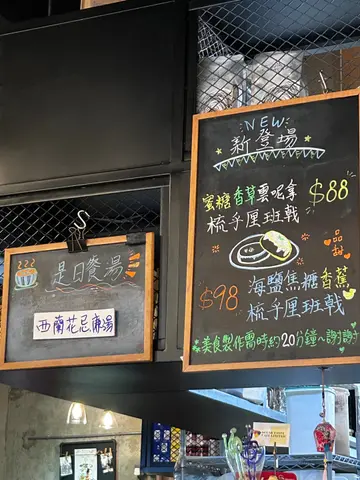 是日餐湯
西蘭花忌廉湯
NEW
新登場
蜜糖香草雲呢拿
梳乎厘班戟
$88
一品甜
海鹽焦糖香蕉
梳乎厘班戟
$98
美食製作需時約20分鐘~謝謝